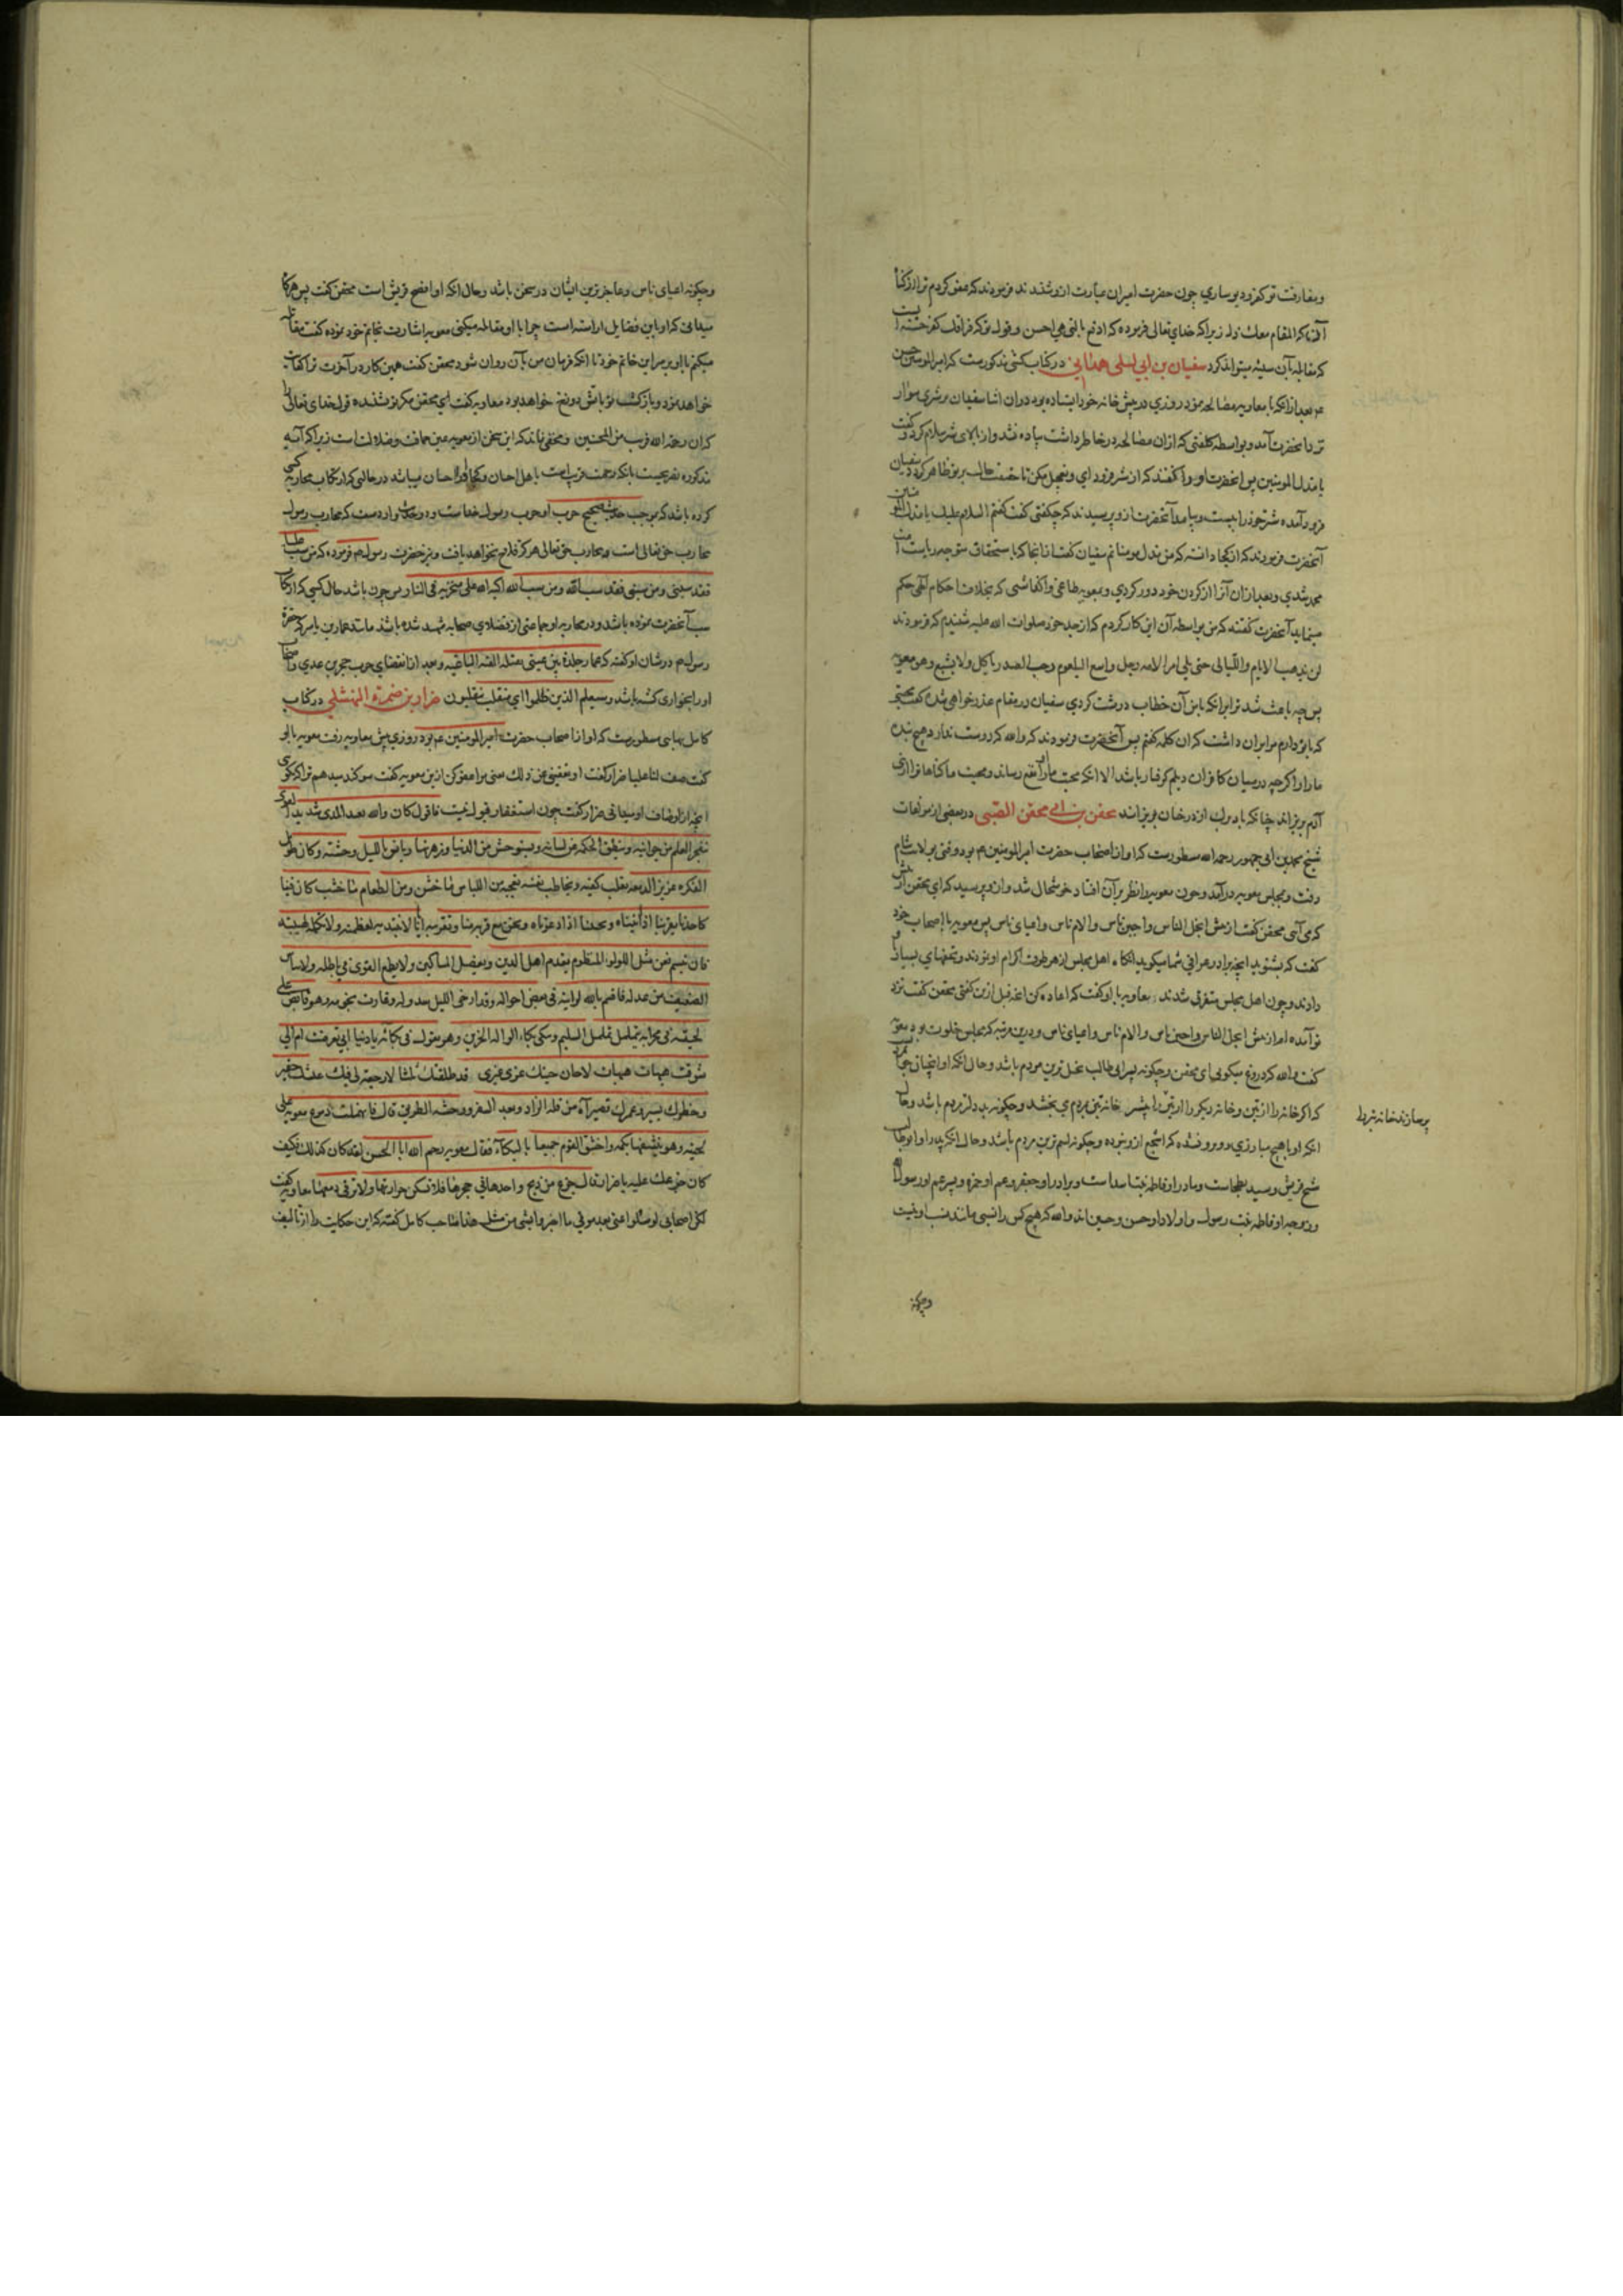 و مفارقت تو کفر و بوساری چون حضرت امیر ان عبارت ازو شنیدند فرمودند که عفو کردم ترا از گناه
آن که المقام معک ذل زیرا که خدای تعالی فرموده که ادفع بالتی هی احسن و قول تو که فراقک کفر حسنه ایست
که مقابله آن سیئه میتواند کرد سفیان بن ابی لیلی همدانی در کتاب کشی مذکورست که امیر المومنین حسن
عم بعد از انکه با معاویه مصالحه نمود روزی در پیش خانه خود ایستاده بود در ان اثنا سفیان بر شتری سوار
نزد آنحضرت آمد و بواسطه کلفتی که از ان مصالحه در خاطر داشت پیاده نشد و از بالای شتر سلام کرد و گفت
یا مذل المومنین پس انحضرت او را گفتند که از شتر فرود ای و تعجیل مکن تا حقیقت حال بر تو ظاهر کردد سفیان
فرود آمده شتر خود را ببست و پیاده آنحضرت ازو پرسیدند که چکفتی گفت گفتم السلام علیک یا مذل المومنین
آنحضرت فرمودند که از کجا دانسته که من مذل مومنانم سفیان گفت از انجا که با استحقاق متوجه ریاست امت
محمد شدی و بعد از ان آنرا از گردن خود دور کردی و بمعویه طاغی واکذاشتی که بخلاف احکام الهی حکم
مینماید آنحضرت گفتند که من بواسطه آن این کار کردم که از جد خود صلوات الله علیه شنیدم که فرمودند
لن تذهب الایام و اللیالی حتی یلی امر الامه رجل واسع البلعوم رحب الصدر یاکل ولا یشبع وهو معویه
پس چه باعث شد ترا بر انکه باین آن خطاب درشت کردی سفیان در مقام عذرخواهی شده گفت محبتی
که بتو دارم مرا بر ان داشت که ان کلمه گفتم پس آنحضرت فرمودند که والله که دوست ندارد هیچ بنده
ما را و اگرچه در میان کافران دیلم گرفتار باشد الا انکه محبت ما او را نفع رساند و محبت ما گناهان را از بنی
آدم بریزاند چنانکه باد برک از درختان بریزاند محقن بن ابی محقن الضبی در بعضی از مولفات
شیخ محمد بن ابی جمهور رحمه الله مسطورست که او از اصحاب حضرت امیر المومنین عم بود وقتی بولایت شام
رفت و بمجلس معویه درآمد و چون معویه را نظر بر آن افتاد خوشحال شد و ازو پرسید که ای محقن از پیش
که می آیی محقن گفت از پیش ابخل الناس و اجبن ناس و الام ناس و اعیای ناس پس معویه با اصحاب خود
گفت که بشنوید انچه برادر عراقی شما میکوید انکاه اهل مجلس از هر طرف اکرام او نمودند و تحفهای بسیار
دادند و چون اهل مجلس متفرق شدند معاویه با او گفت که اعاده کن انچه قبل ازین گفتی محقن گفت نزد
تو آمده ام از پیش ابخل الناس و اجبن ناس و الام ناس و اعیای ناس و درین مرتبه که مجلس خلوت بود معویه
گفت والله که دروغ میکویی ای محقن و چگونه پسر ابی طالب بخیل ترین مردم باشد و حال انکه او انچنان جوانمرد
که اگر خانه را از تبن و خانه دیگر را از تبر پر سازند خانه تبر را بیشتر
انکه او با هیچ مبارزی روبرو نشده که اشجع ازو بوده و چگونه لئیم ترین مردم باشد و حال انکه پدر او ابوطالب
شیخ قریش و سید بطحاست و مادر او فاطمه بنت اسد است و برادر او جعفر و عم او حمزه و پسر عم او رسول الله
و زوجه او فاطمه بنت رسول و اولاد او حسن و حسین اند والله که هیچ کس را نسبی مانند نسب او نیست
پر سازند خانه تبر را
و چگونه
و چگونه اعیای ناس و عاجزترین ایشان در سخن باشد و حال انکه او افصح قریش است محقن گفت پس هرگاه
میدانی که او باین فضایل اراسته است چرا با او مقاتله میکنی معویه اشارت بخاتم خود نموده گفت مقاتله
میکنم با او بر سر این خاتم خود تا انکه فرمان من بآن روان شود محقن گفت همین کار در آخرت ترا کفایت
خواهد بود و بازگشت تو بآتش دوزخ خواهد بود معاویه گفت ای محقن مگر تو نشنیده قول خدای تعالی را
که ان رحمه الله قریب من المحسنین و مخفی نماند که این سخن از معویه عین حماقت و ضلالت است زیرا که آیه
مذکوره تصریحست بانکه رحمت قریب است باهل احسان و کجا او را احسان میباشد در حالتی که ارتکاب محاربه کسی
کرده باشد که بموجب حدیث صحیح حرب او حرب رسول خداست و در حدیث وارد است که محارب رسول
محارب حق تعالی است و محارب حق تعالی هرگز فلاح نخواهد یافت و نیز حضرت رسول صلعم فرموده که من سب علیا
فقد سبنی و من سبنی فقد سب الله و من سب الله اکبه الله علی منخریه فی النار پس چون باشد حال کسی که ارتکاب
سب آنحضرت نموده باشد و در محاربه او جماعتی از فضلای صحابه شهید شده باشند مانند عمار بن یاسر که حضرت
رسول صلعم در شان او گفته که عمار جلدة بین عینی تقتله الفئه الباغیه و بعد از انقضای حرب حجر بن عدی و اصحاب
او را بخواری کشته باشد و سیعلم الذین ظلموا ای منقلب ینقلبون ضرار بن ضمره النهشلی در کتاب
کامل بهایی مسطورست که او از اصحاب حضرت امیر المومنین عم بود روزی پیش معاویه رفت معویه با او
گفت صف لنا علیا ضرار گفت او تعفینی عن ذلک یعنی مرا معفو کن ازین معویه گفت سوکند میدهم ترا که بگوی
انچه از اوصاف او میدانی ضرار گفت چون استعفا در قبول نیست فاقول کان والله بعید المدی شدید القوی
یتفجر العلم من جوانبه و ینطق الحکمه من لسانه و یستوحش من الدنیا و زهرتها و یانس باللیل و وحشته و کان طویل
الفکره غزیر الدمعه یقلب کفیه و یخاطب نفسه یعجبه من اللباس ما خشن و من الطعام ما خشب کان فینا
کاحدنا یقربنا اذا اتیناه و یجیبنا اذا دعوناه و نحن مع قربه منا و تقریبه ایانا لا نبتدیه لعظمته و لا نکلمه لهیبته
فان تبسم فعن مثل اللولو المنظوم یقدم اهل الدین و یفضل المساکین و لا یطمع القوی فی باطله و لا ییاس
الضعیف من عدله فاقسم بالله لرایته فی بعض احواله و قد ارخی اللیل سدوله و غارت نجومه و هو قابض علی
لحیته فی محرابه یتململ تململ السلیم و یبکی بکاء الواله الحزین و هو یقول فی بکائه یا دنیا ابی تعرضت ام الی
تشوقت هیهات هیهات لا حان حینک غری غیری قد طلقتک ثلثا لا رجعة لی فیک عیشک حقیر
و خطرک یسیر و عمرک قصیر آه من قلة الزاد و بعد السفر و وحشه الطریق قال فانهملت دموع معویه علی
لحیته و هو ینشفها بکمه و اختنق القوم جمیعا بالبکاء فقال معویه رحم الله ابا الحسن لقد کان کذلک فکیف
کان حزنک علیه یا ضرار قال حزن من ذبح واحدها فی حجرها فلا تسکن حرارتها و لا ترقی دمعتها معاویه گفت
لکن اصحابی لو سئلوا عنی بعد موتی ما اخبروا بشی من مثل هذا صاحب کامل گفته که این حکایت را از تالیف